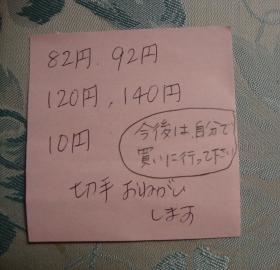 82円、92円
120円，140円
10円
今後は、自分で
買いに行って下さい
切手 おねがい
します